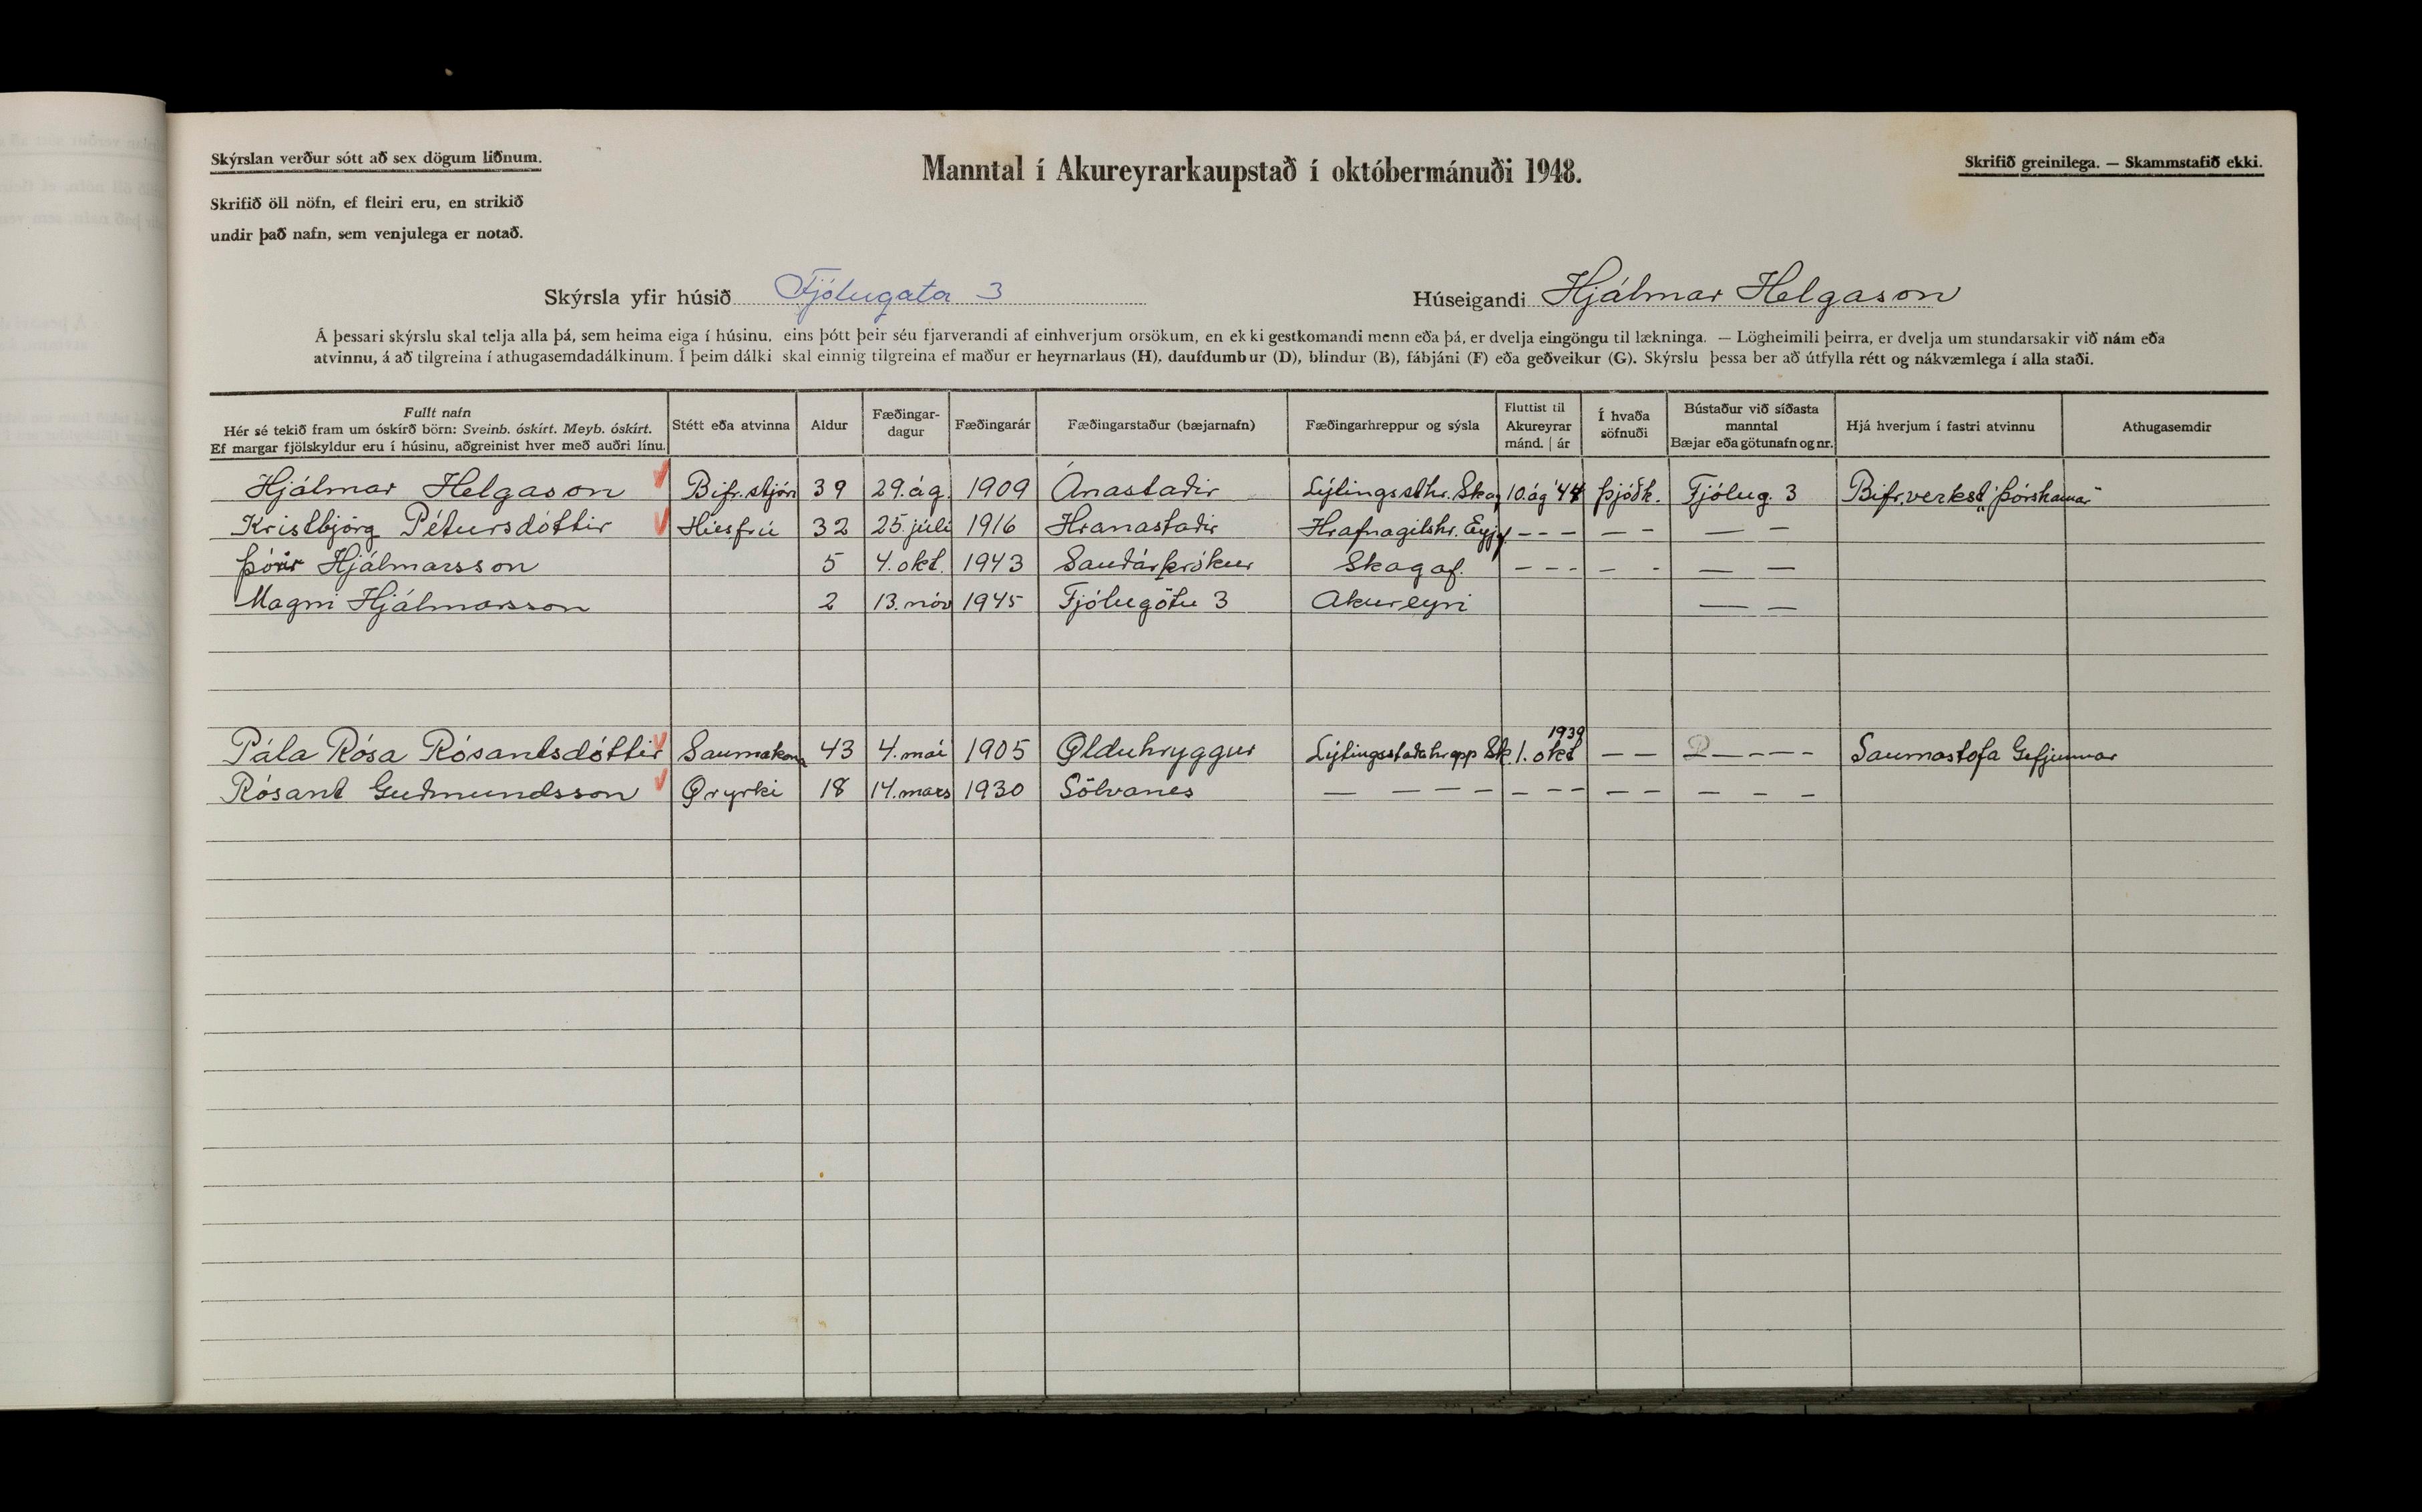 Skýrslan verður sótt að sex dögum liðnum.
Manntal í Akureyrarkaupstað í októbermánuði 1948.
Skrifið greinilega. — Skammstafið ekki.
Skrifið öll nöfn, ef fleiri eru, en strikið
undir það nafn, sem venjulega er notað.
Skýrsla yfir húsið Fjólugata 3 Húseigandi Hjálmar Helgason
Á þessari skýrslu skal telja alla þá, sem heima eiga í húsinu, eins þótt þeir séu fjarverandi af einhverjum orsökum, en ekki gestkomandi menn eða þá, er dvelja eingöngu til lækninga. — Lögheimili þeirra, er dvelja um stundarsakir við nám eða
atvinnu, á að tilgreina í athugasemdadálkinum. Í þeim dálki skal einnig tilgreina ef maður er heyrnarlaus (H), daufdumbur (D), blindur (B), fábjáni (F) eða geðveikur (G). Skýrslu þessa ber að útfylla rétt og nákvæmlega í alla staði.
Fullt nafn
Hér sé tekið fram um óskírð börn: Sveinb. óskírt. Meyb. óskírt.
Ef margar fjölskyldur eru í húsinu, aðgreinist hver með auðri línu.
Stétt eða atvinna
Aldur
Fæðingar-
dagur
Fæðingarár
Fæðingarstaður (bæjarnafn)
Fæðingarhreppur og sýsla
Fluttist til
Akureyrar
mánd. | ár
Í hvaða
söfnuði
Bústaður við síðasta
manntal
Bæjar eða götunafn og nr.
Hjá hverjum í fastri atvinnu
Athugasemdir
Hjálmar Helgason Bifr.stjóri 39 29. ág. 1909 Ánastaðir Lýtingssthr. Skag 10. ág '44 Þjóðk. Fjólug. 3 Bifr.verkst. „Þórshamar"
Kristbjörg Pétursdóttir Húsfrú 32 25. júlí 1916 Hranastaðir Hrafnagilshr. Eyjf - - - — - — —
Þórir Hjálmarsson 5 4. okt. 1943 Sauðárkrókur Skagaf. - - - - - — —
Magni Hjálmarsson 2 13. nóv 1945 Fjólugötu 3 Akureyri — —
Pála Rósa Rósantsdóttir Saumakona 43 4. maí 1905 Ölduhryggur Lýtingsstaðahrepp Sk. 1. okt 1939 — — — - - - Saumastofa Gefjunnar
Rósant Guðmundsson Öryrki 18 14. mars 1930 Sölvanes — — — — - - - — — — - -